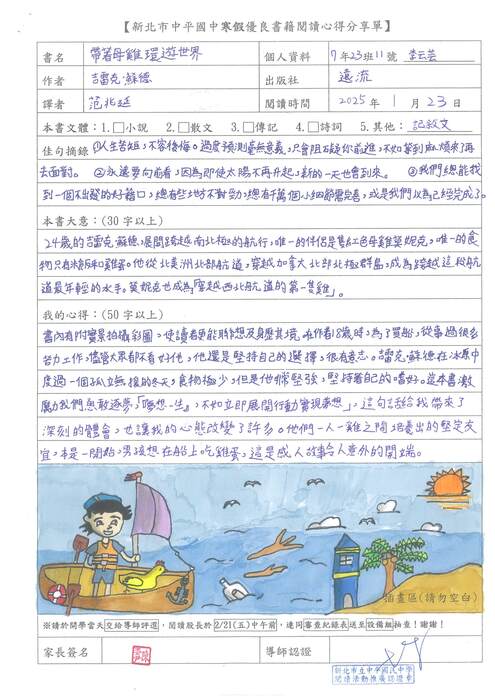 【新北市中平國中寒假優良書籍閱讀心得分享單】
書名 帶著母雞環遊世界 個人資料 7年23班11號 李云芸
作者 吉雷克.蘇德 出版社 遠流
譯者 范兆延 閱讀時間 2025年1月23日
本書文體：1.□小說 2.□散文 3.□傳記 4.□詩詞 5.其他：記敘文
佳句摘錄 ①人生苦短，不容後悔。過度預測毫無意義，只會阻礙你前進，不如等到麻煩來了再
去面對。 ②永遠要向前看，因為即使太陽不再升起，新的一天也會到來。 ③我們總能找
到一個不出發的好藉口，總有些地方不對勁，總有千萬個小細節要完善，或是我們以為已經完成了。
本書大意：(30字以上)
24歲的吉雷克.蘇德，展開跨越南北極的航行，唯一的伴侶是隻紅色母雞莫妮克，唯一的食
物只有米飯和雞蛋。他從北美洲北部航道，穿越加拿大北部北極群島，成為跨越這段航
道最年輕的水手。莫妮克也成為「穿越西北航道的第一隻雞」。
我的心得：(50字以上)
書內有附實景拍攝彩圖，使讀者更能聯想及身歷其境。在作者18歲時，為了買船，從事過很多
勞力工作，儘管大眾都不看好他，他還是堅持自己的選擇，很有意志。吉雷克.蘇德在冰原中
度過一個孤立無援的冬天，食物極少，但是他常堅強，堅持著自己的嗜好。這本書激
勵我們勇敢逐夢，「夢想一生，不如立即展開行動實現夢想」，這句話給我帶來了
深刻的體會，也讓我的心態改變了許多。他們一人一雞之間培養出的堅定友
宜，本是一開始，男孩想在船上吃雞蛋，這是感人故事令人意外的開端。
插畫區(請勿空白)
※請於開學當天交給導師評選，閱讀股長於2/21(五)中午前，連同審查紀錄表送至設備組抽查！謝謝！
家長簽名 導師認證
新北市立中平國民中學
閱讀活動推廣認證章